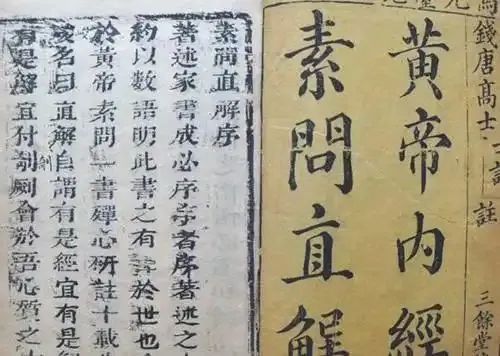 錢唐高士
註
三餘堂
黃帝內經
素問直解
素問直解序
著述家書成必序序者序著述之
約以數語明此書之有於世也
於黃帝素問一書殫心硏註十載
名曰直解自謂有是經宜有是
有是解宜付剞劂會於語質之